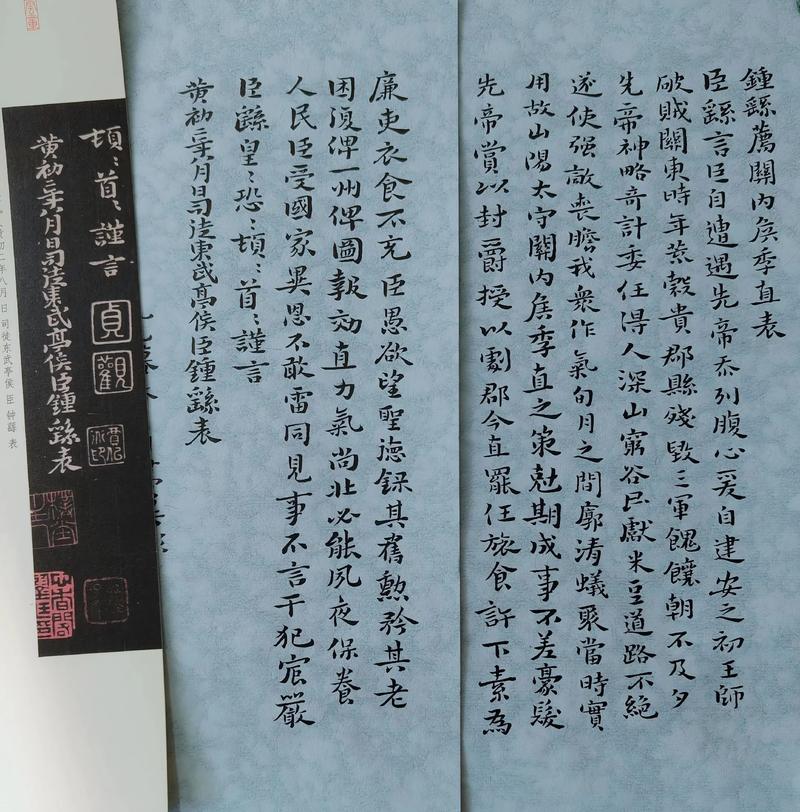 鍾繇薦關內侯季直表
臣繇言臣自遭遇先帝忝列腹心爰自建安之初王師
破賊關東時年荒穀貴郡縣殘毀三軍餽饟朝不及夕
先帝神略奇計委任得人深山窮谷民獻米豆道路不絕
遂使强敵喪膽我衆作氣旬月之間廓清蟻聚當時實
用故山陽太守關內侯季直之策尅期成事不差豪髮
先帝賞以封爵授以劇郡今直罷任旅食許下素為
廉吏衣食不充臣愚欲望聖德錄其舊勲矜其老
困復俾一州俾圖報効直力氣尚壯必能夙夜保養
人民臣受國家異恩不敢雷同見事不言干犯宸嚴
臣繇皇〻恐〻頓〻首〻謹言
黃初二年八月日司徒東武亭侯臣鍾繇表
頓〻首〻謹言
貞觀
黃初二年八月日司徒東武亭侯臣鍾繇表
初二年八月 日 司徒东武亭侯 臣 钟繇 表